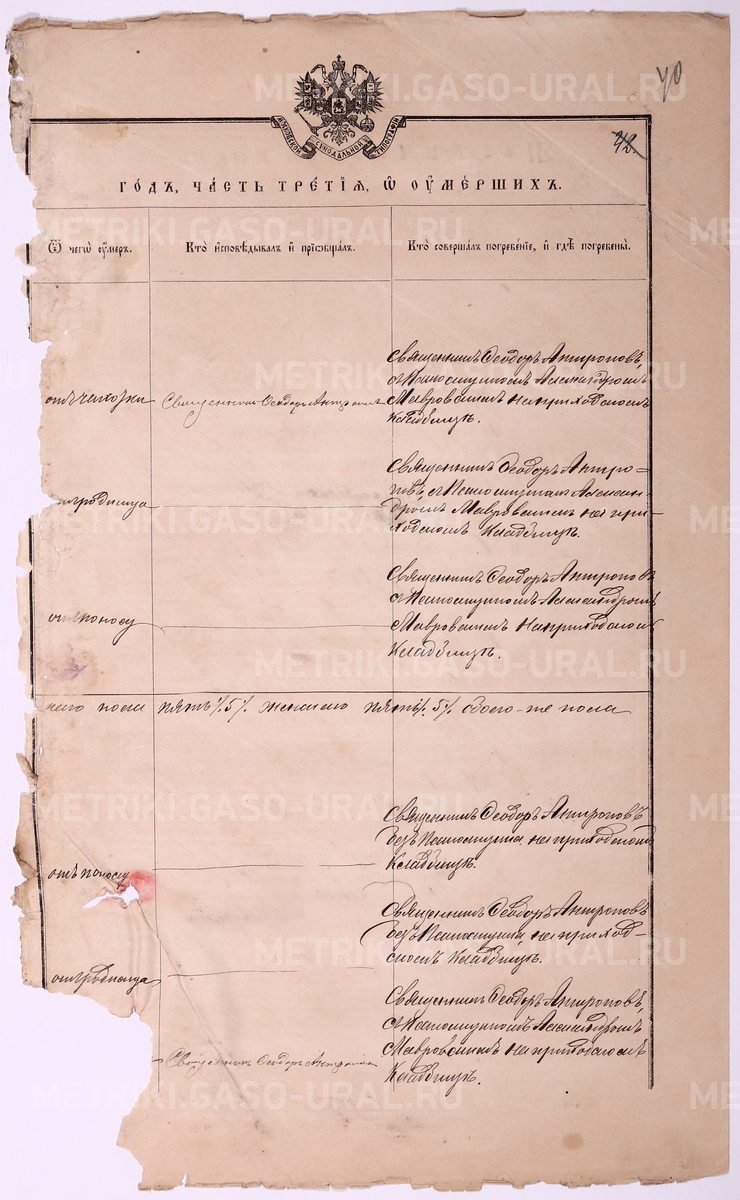 40
МОСКОВСКОЙ СѴНОДАЛЬНОЙ ТИПОГРАФІИ
42.
ГОДЪ, ЧАСТЬ ТРЕТІЯ, Ѿ ОУМЕРШИХЪ.
Ѿ чегѡ оумеръ.
Кто исповѣдывалъ и приѡбщалъ.
Кто совершалъ погребеніе, и гдѣ погребены.
отъ чахотки
Священникъ Ѳеодоръ Антроповъ
Священникъ Ѳеодоръ Антроповъ,
съ Псаломщикомъ Александромъ
Мавровскимъ на приходскомъ
Кладбищѣ.
родимца
Священникъ Ѳеодоръ Антро-
повъ съ Псаломщикомъ Алексан-
дромъ Мавровскимъ на при-
ходскомъ Кладбищѣ.
отъ поносу
Священникъ Ѳеодоръ Антроповъ
съ Псаломщикомъ Александромъ
Мавровскимъ на приходскомъ
Кладбищѣ.
пола пять /:5:/. женскаго пять /:5:/. обоего-же пола
отъ поносу
Священникъ Ѳеодоръ Антроповъ
безъ Псаломщика на приходскомъ
Кладбищѣ.
отъ родимца
Священникъ Ѳеодоръ Антроповъ
безъ Псаломщика, на приход-
скомъ Кладбищѣ.
Священникъ Ѳеодоръ Антроповъ
Священникъ Ѳеодоръ Антроповъ,
съ Псаломщикомъ Александромъ
Мавровскимъ на приходскомъ
Кладбищѣ.
METRIKI.GASO-URAL.RU